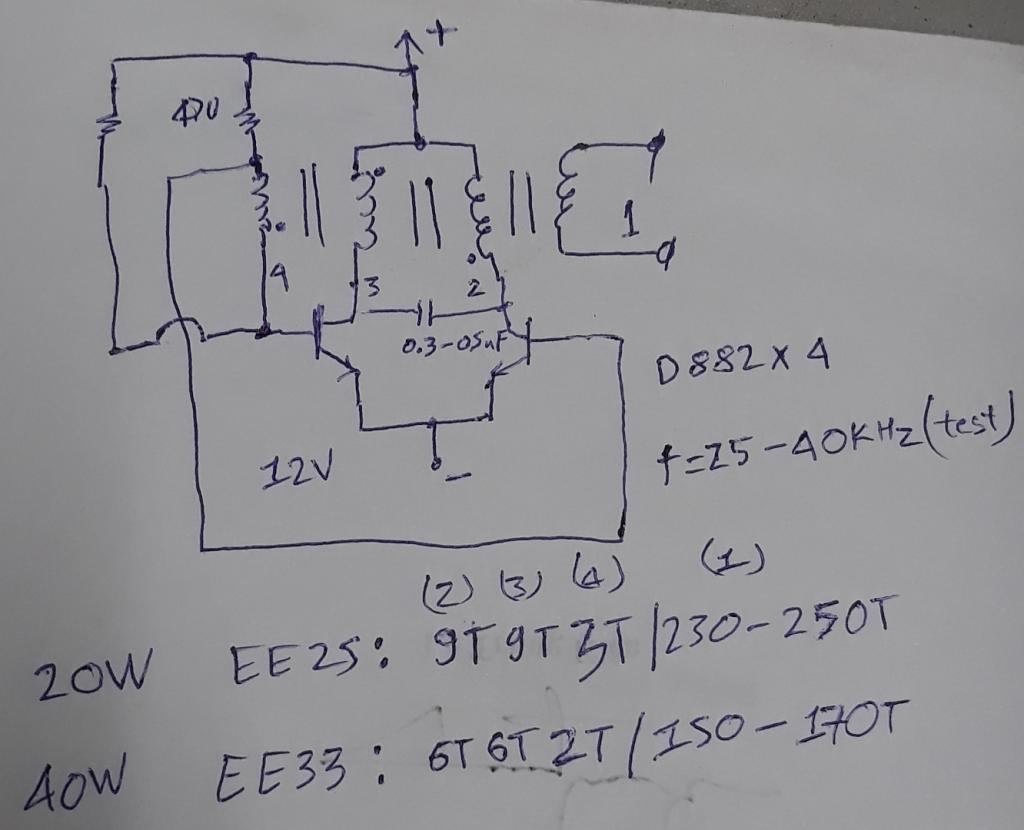 +
470
1
4
3
2
0.3-05uF
D882x4
12V
f=25-40KHz(test)
(2) (3) (4) (1)
20W EE25: 9T 9T 3T/230-250T
40W EE33: 6T 6T 2T/150-170T